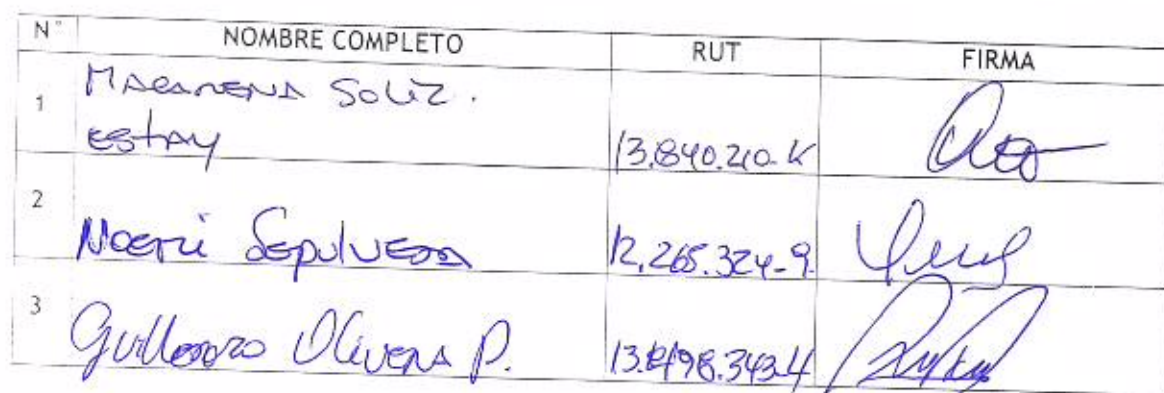 N° NOMBRE COMPLETO RUT FIRMA
1 Macarena Soliz.
Estay 13.840.210-K
2 Noemi Sepulveda 12.265.324-9.
3 Guillermo Olivera P.